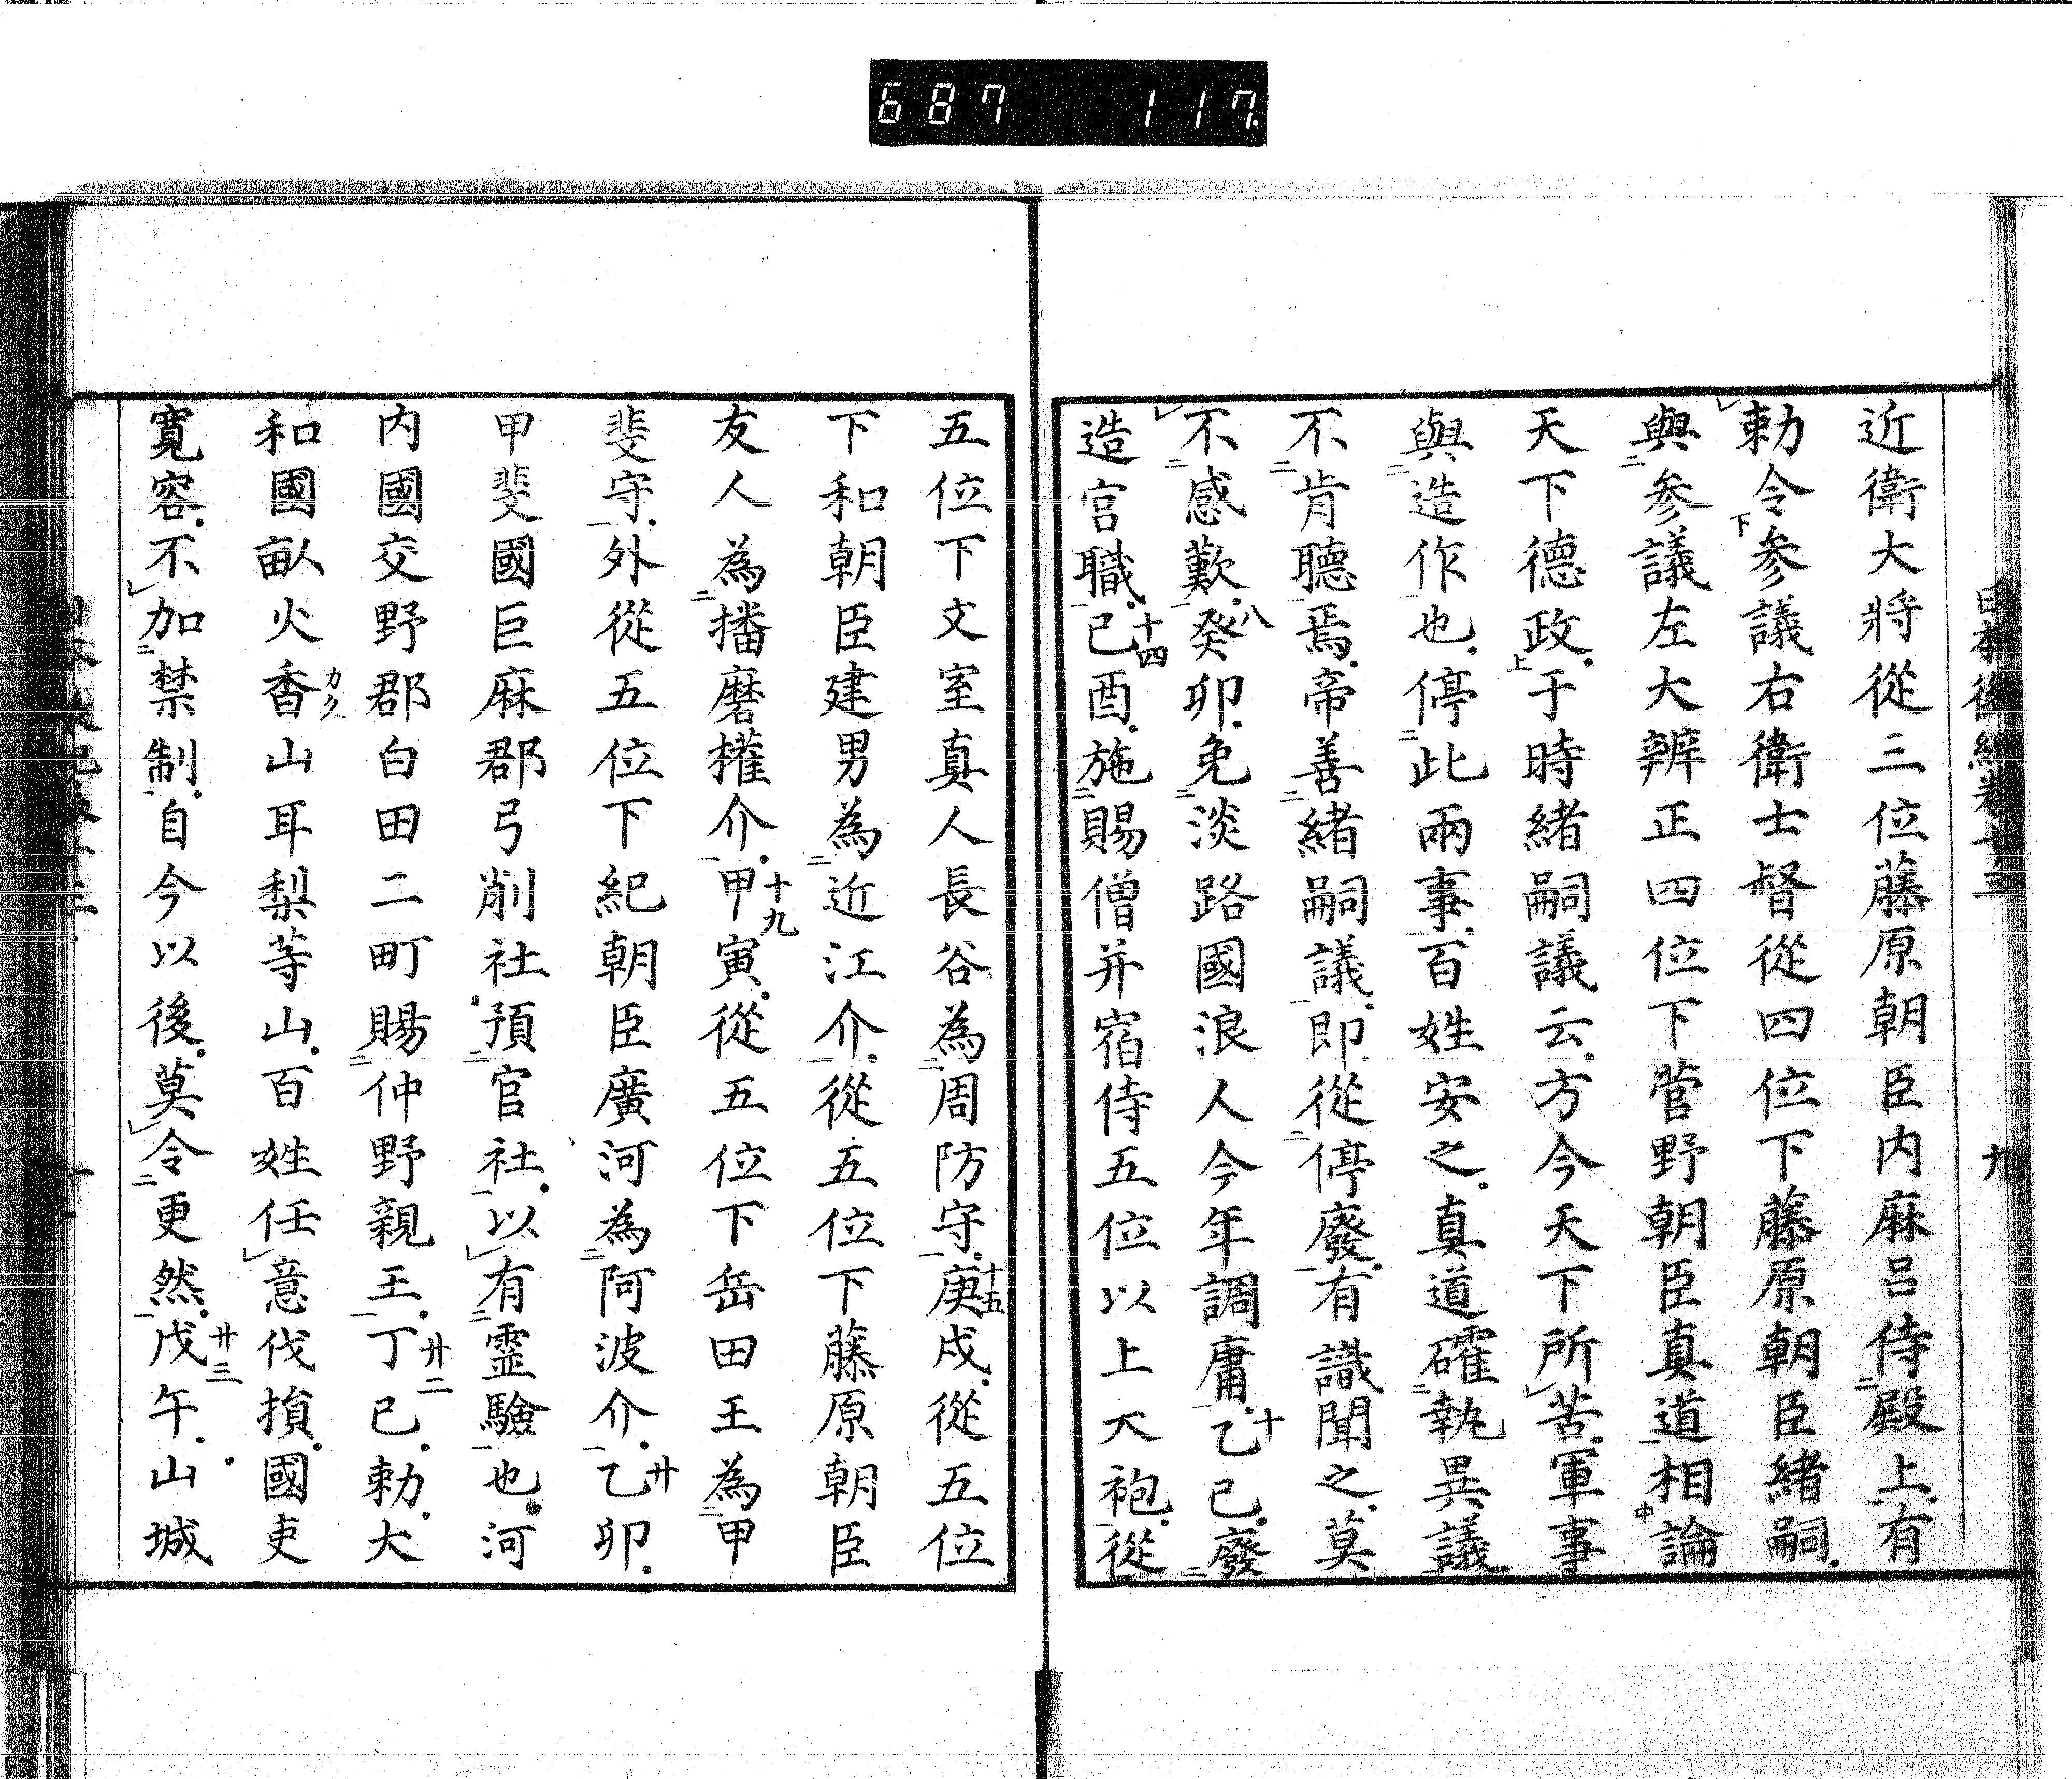 687 117
日本後紀卷十三 九
近衛大將從三位藤原朝臣内麻呂侍殿上有
勅令参議右衛士督從四位下藤原朝臣緒嗣
與参議左大辨正四位下菅野朝臣真道相論
天下德政于時緒嗣議云方今天下所苦軍事
與造作也停此兩事百姓安之真道確執異議
不肯聽焉帝善緒嗣議即從停廢有識聞之莫
不感歎八癸卯免淡路國浪人今年調庸十乙已廢
造宮職十四己酉施賜僧并宿侍五位以上大袍從
五位下文室真人長谷為周防守十五庚戌從五位
下和朝臣建男為近江介從五位下藤原朝臣
友人為播磨權介十九甲寅從五位下岳田王為甲
斐守外從五位下紀朝臣廣河為阿波介廿乙卯
甲斐國巨麻郡弓削社預官社以有霊驗也河
内國交野郡白田二町賜仲野親王廿二丁巳勅大
和國畝火香カク山耳梨等山百姓任意伐損國吏
寛容不加禁制自今以後莫令更然廿三戊午山城